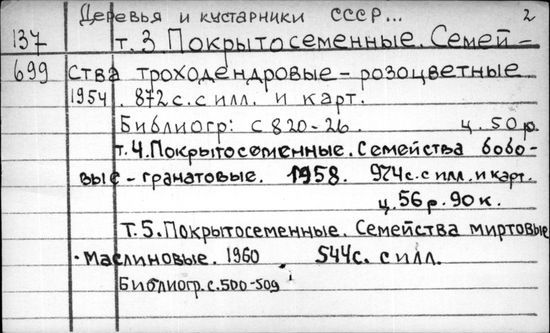 Деревья и кустарники СССР... 2
137 т.3 Покрытосеменные. Семей-
699 ства троходендровые - розоцветные
1954. 872 с. с илл. и карт.
Библиогр: с 820-26. ц. 50 р.
т.4. Покрытосеменные. Семейства бобо-
вые - гранатовые. 1958. 974 с. с илл. и карт.
ц. 56 р. 90 к.
т.5. Покрытосеменные. Семейства миртовые
- маслиновые. 1960. 544 с. с илл.
Библиогр. с. 500-509